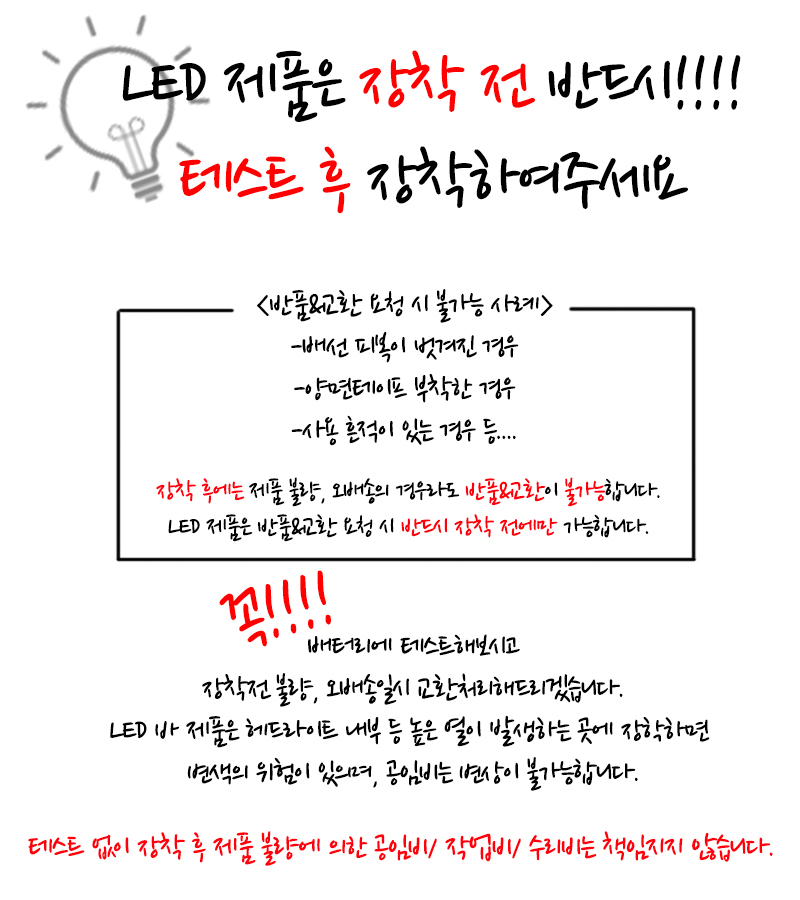 LED 제품은 장착 전 반드시!!!!
테스트 후 장착하여주세요
<반품&교환 요청 시 불가능 사례>
-배선 피복이 벗겨진 경우
-양면테이프 부착한 경우
-사용 흔적이 있는 경우 등....
장착 후에는 제품 불량, 오배송의 경우라도 반품&교환이 불가능합니다.
LED 제품은 반품&교환 요청 시 반드시 장착 전에만 가능합니다.
꼭!!!!
배터리에 테스트해보시고
장착전 불량, 오배송일시 교환처리해드리겠습니다.
LED 바 제품은 헤드라이트 내부 등 높은 열이 발생하는 곳에 장학하면
변색의 위험이 있으며, 공임비는 변상이 불가능합니다.
테스트 없이 장착 후 제품 불량에 의한 공임비/ 작업비/ 수리비는 책임지지 않습니다.